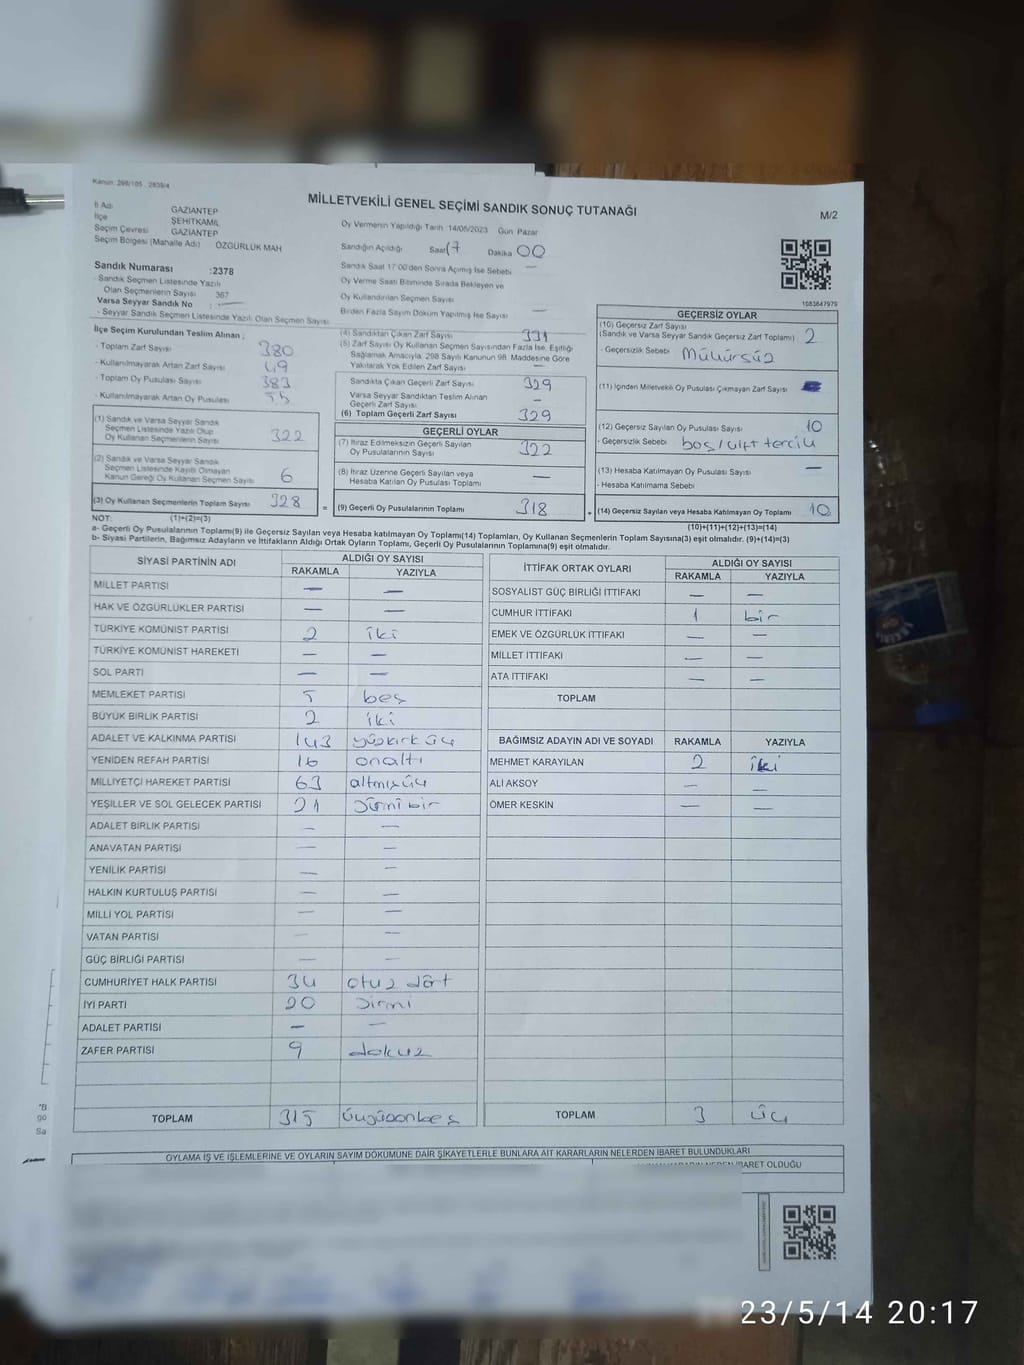 Kanun: 298/105 2839/4
MİLLETVEKİLİ GENEL SEÇİMİ SANDIK SONUÇ TUTANAĞI
M/2
İl Adı GAZİANTEP
İlçe ŞEHİTKAMİL
Seçim Çevresi GAZİANTEP
Seçim Bölgesi (Mahalle Adı) ÖZGÜRLÜK MAH
Oy Vermenin Yapıldığı Tarih 14/05/2023 Gün Pazar
Sandığın Açıldığı Saat 17 Dakika 00
Sandık Saat 17:00'den Sonra Açımış İse Sebebi —
Oy Verme Saati Bitiminde Sırada Bekleyen ve
Oy Kullandırılan Seçmen Sayısı
Birden Fazla Sayım Döküm Yapılmış İse Sayısı —
Sandık Numarası :2378
- Sandık Seçmen Listesinde Yazılı
Olan Seçmenlerin Sayısı 367
Varsa Seyyar Sandık No : —
- Seyyar Sandık Seçmen Listesinde Yazılı Olan Seçmen Sayısı
1083647979
İlçe Seçim Kurulundan Teslim Alınan ;
- Toplam Zarf Sayısı 380
- Kullanılmayarak Artan Zarf Sayısı 49
- Toplam Oy Pusulası Sayısı 383
- Kullanılmayarak Artan Oy Pusulası
(1) Sandık ve Varsa Seyyar Sandık
Seçmen Listesinde Yazılı Olup
Oy Kullanan Seçmenlerin Sayısı 322
(2) Sandık ve Varsa Seyyar Sandık
Seçmen Listesinde Kayıtlı Olmayan
Kanun Gereği Oy Kullanan Seçmen Sayısı 6
(3) Oy Kullanan Seçmenlerin Toplam Sayısı 328
(4) Sandıktan Çıkan Zarf Sayısı 331
(5) Zarf Sayısı Oy Kullanan Seçmen Sayısından Fazla İse, Eşitliği
Sağlamak Amacıyla, 298 Sayılı Kanunun 98. Maddesine Göre
Yakılarak Yok Edilen Zarf Sayısı —
Sandıkta Çıkan Geçerli Zarf Sayısı 329
Varsa Seyyar Sandıktan Teslim Alınan
Geçerli Zarf Sayısı —
(6) Toplam Geçerli Zarf Sayısı 329
GEÇERLİ OYLAR
(7) İtiraz Edilmeksizin Geçerli Sayılan
Oy Pusulasının Sayısı 322
(8) İtiraz Üzerine Geçerli Sayılan veya
Hesaba Katılan Oy Pusulası Toplamı —
= (9) Geçerli Oy Pusulalarının Toplamı 318
GEÇERSİZ OYLAR
(10) Geçersiz Zarf Sayısı
(Sandık ve Varsa Seyyar Sandık Geçersiz Zarf Toplamı) 2
- Geçersizlik Sebebi Mühürsüz
(11) İçinden Milletvekili Oy Pusulası Çıkmayan Zarf Sayısı
(12) Geçersiz Sayılan Oy Pusulası Sayısı 10
- Geçersizlik Sebebi boş/çift tercih
(13) Hesaba Katılmayan Oy Pusulası Sayısı —
- Hesaba Katılmama Sebebi
+ (14) Geçersiz Sayılan veya Hesaba Katılmayan Oy Toplamı 10
NOT: (1)+(2)=(3)
(10)+(11)+(12)+(13)=(14)
a- Geçerli Oy Pusulalarının Toplamı(9) ile Geçersiz Sayılan veya Hesaba katılmayan Oy Toplamı(14) Toplamları, Oy Kullanan Seçmenlerin Toplam Sayısına(3) eşit olmalıdır. (9)+(14)=(3)
b- Siyasi Partilerin, Bağımsız Adayların ve İttifakların Aldığı Ortak Oyların Toplamı, Geçerli Oy Pusulalarının Toplamına(9) eşit olmalıdır.
SİYASİ PARTİNİN ADI ALDIĞI OY SAYISI
RAKAMLA YAZIYLA
MİLLET PARTİSİ — —
HAK VE ÖZGÜRLÜKLER PARTİSİ — —
TÜRKİYE KOMÜNİST PARTİSİ 2 iki
TÜRKİYE KOMÜNİST HAREKETİ — —
SOL PARTİ — —
MEMLEKET PARTİSİ 5 beş
BÜYÜK BİRLİK PARTİSİ 2 iki
ADALET VE KALKINMA PARTİSİ 143 yüzkırk üç
YENİDEN REFAH PARTİSİ 16 onaltı
MİLLİYETÇİ HAREKET PARTİSİ 63 altmışüç
YEŞİLLER VE SOL GELECEK PARTİSİ 21 yirmi bir
ADALET BİRLİK PARTİSİ — —
ANAVATAN PARTİSİ — —
YENİLİK PARTİSİ — —
HALKIN KURTULUŞ PARTİSİ — —
MİLLİ YOL PARTİSİ — —
VATAN PARTİSİ — —
GÜÇ BİRLİĞİ PARTİSİ — —
CUMHURİYET HALK PARTİSİ 34 otuz dört
İYİ PARTİ 20 yirmi
ADALET PARTİSİ — —
ZAFER PARTİSİ 9 dokuz
TOPLAM 315 üçyüzonbeş
İTTİFAK ORTAK OYLARI ALDIĞI OY SAYISI
RAKAMLA YAZIYLA
SOSYALİST GÜÇ BİRLİĞİ İTTİFAKI — —
CUMHUR İTTİFAKI 1 bir
EMEK VE ÖZGÜRLÜK İTTİFAKI — —
MİLLET İTTİFAKI — —
ATA İTTİFAKI — —
TOPLAM
BAĞIMSIZ ADAYIN ADI VE SOYADI RAKAMLA YAZIYLA
MEHMET KARAYILAN 2 iki
ALİ AKSOY — —
ÖMER KESKİN — —
TOPLAM 3 üç
OYLAMA İŞ VE İŞLEMLERİNE VE OYLARIN SAYIM DÖKÜMÜNE DAİR ŞİKAYETLERLE BUNLARA AİT KARARLARIN NELERDEN İBARET BULUNDUKLARI
İBARET OLDUĞU
23/5/14 20:17